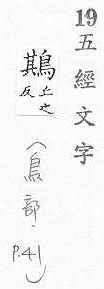 19五經文字
上之
反
（鳥部．P.41）